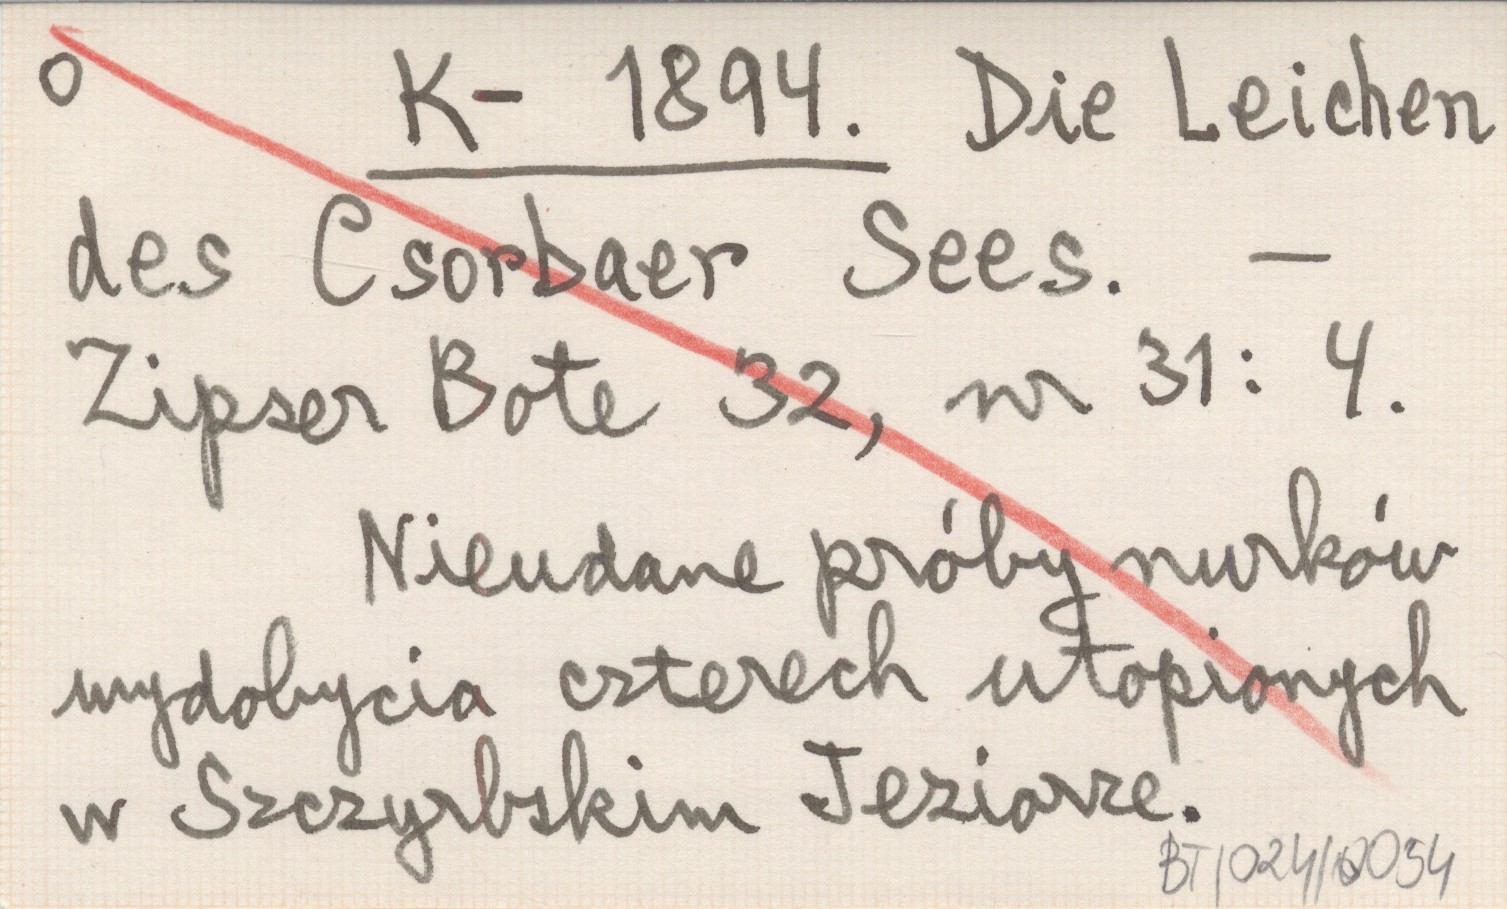 o K- 1894. Die Leichen
des Csorbaer Sees. —
Zipser Bote 32, nr 31: 4.
Nieudane próby nurków
wydobycia czterech utopionych
w Szczyrbskim Jeziorze.
BT/024/